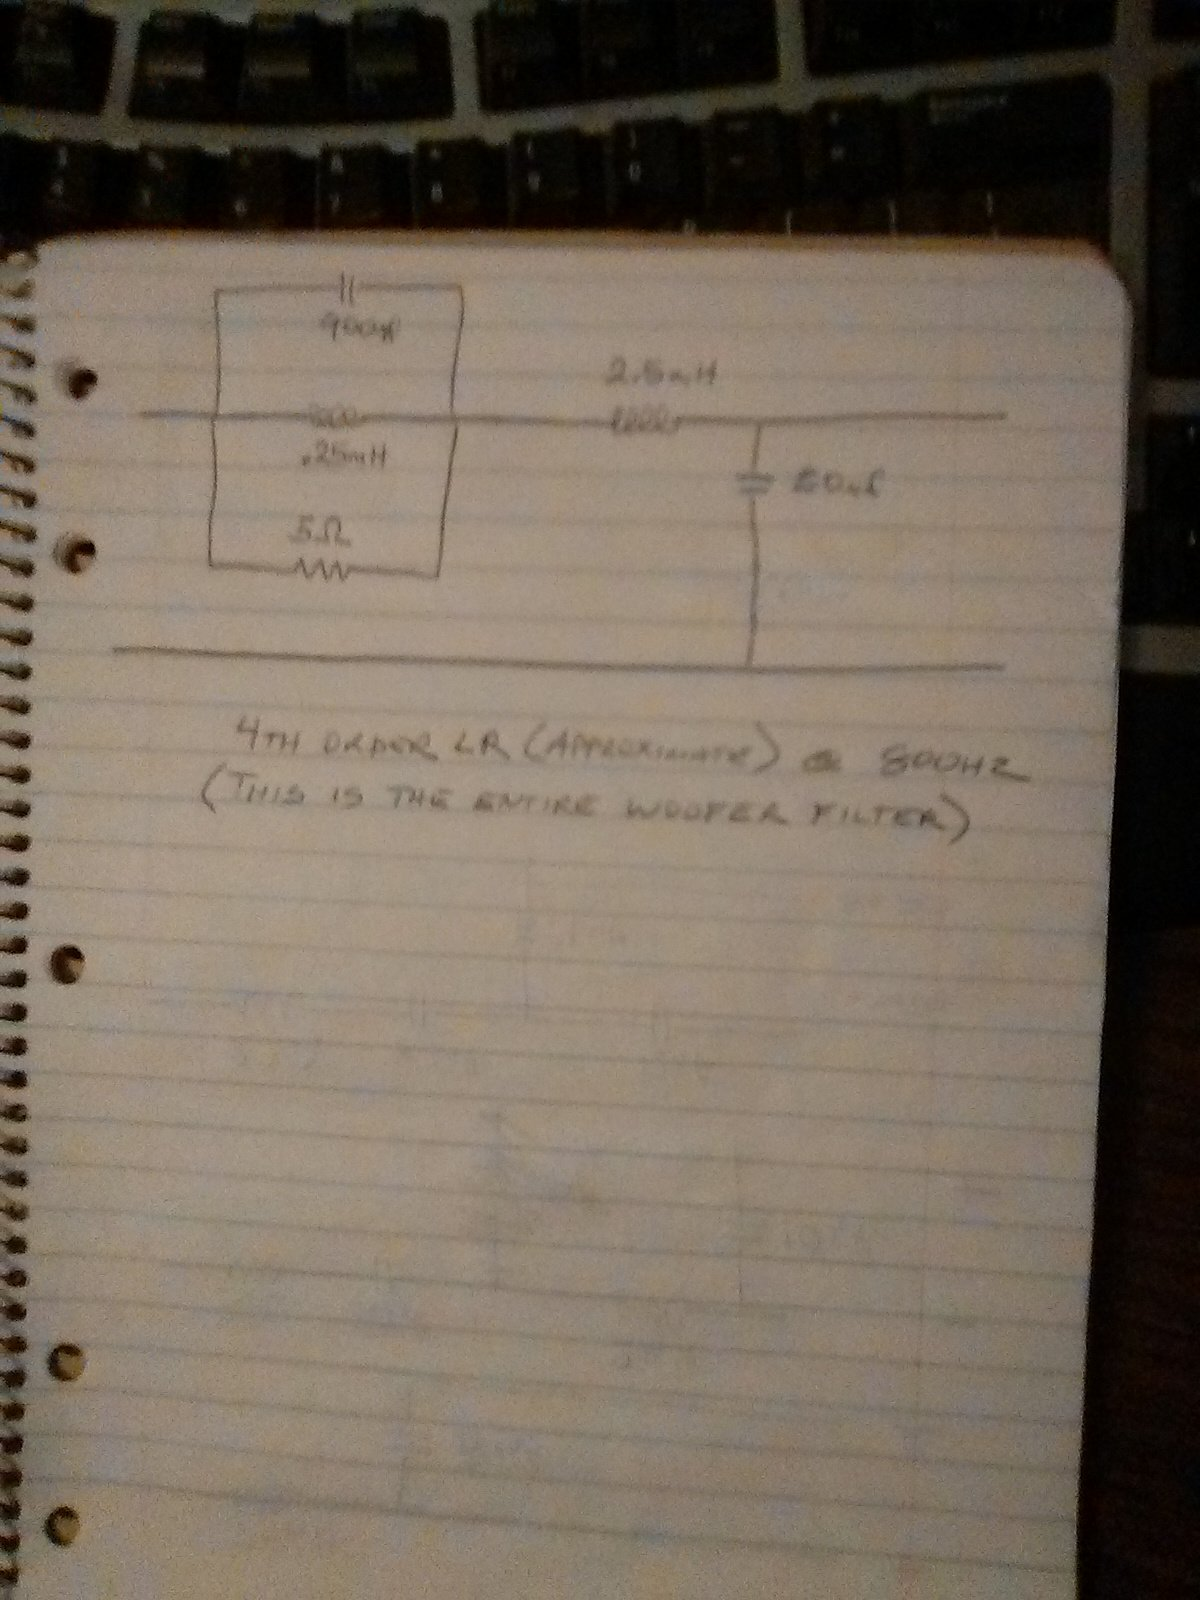 900uf
2.5mH
.25mH
5Ω
4TH ORDER LR (APPROXIMATE) @ 800HZ
(THIS IS THE ENTIRE WOOFER FILTER)